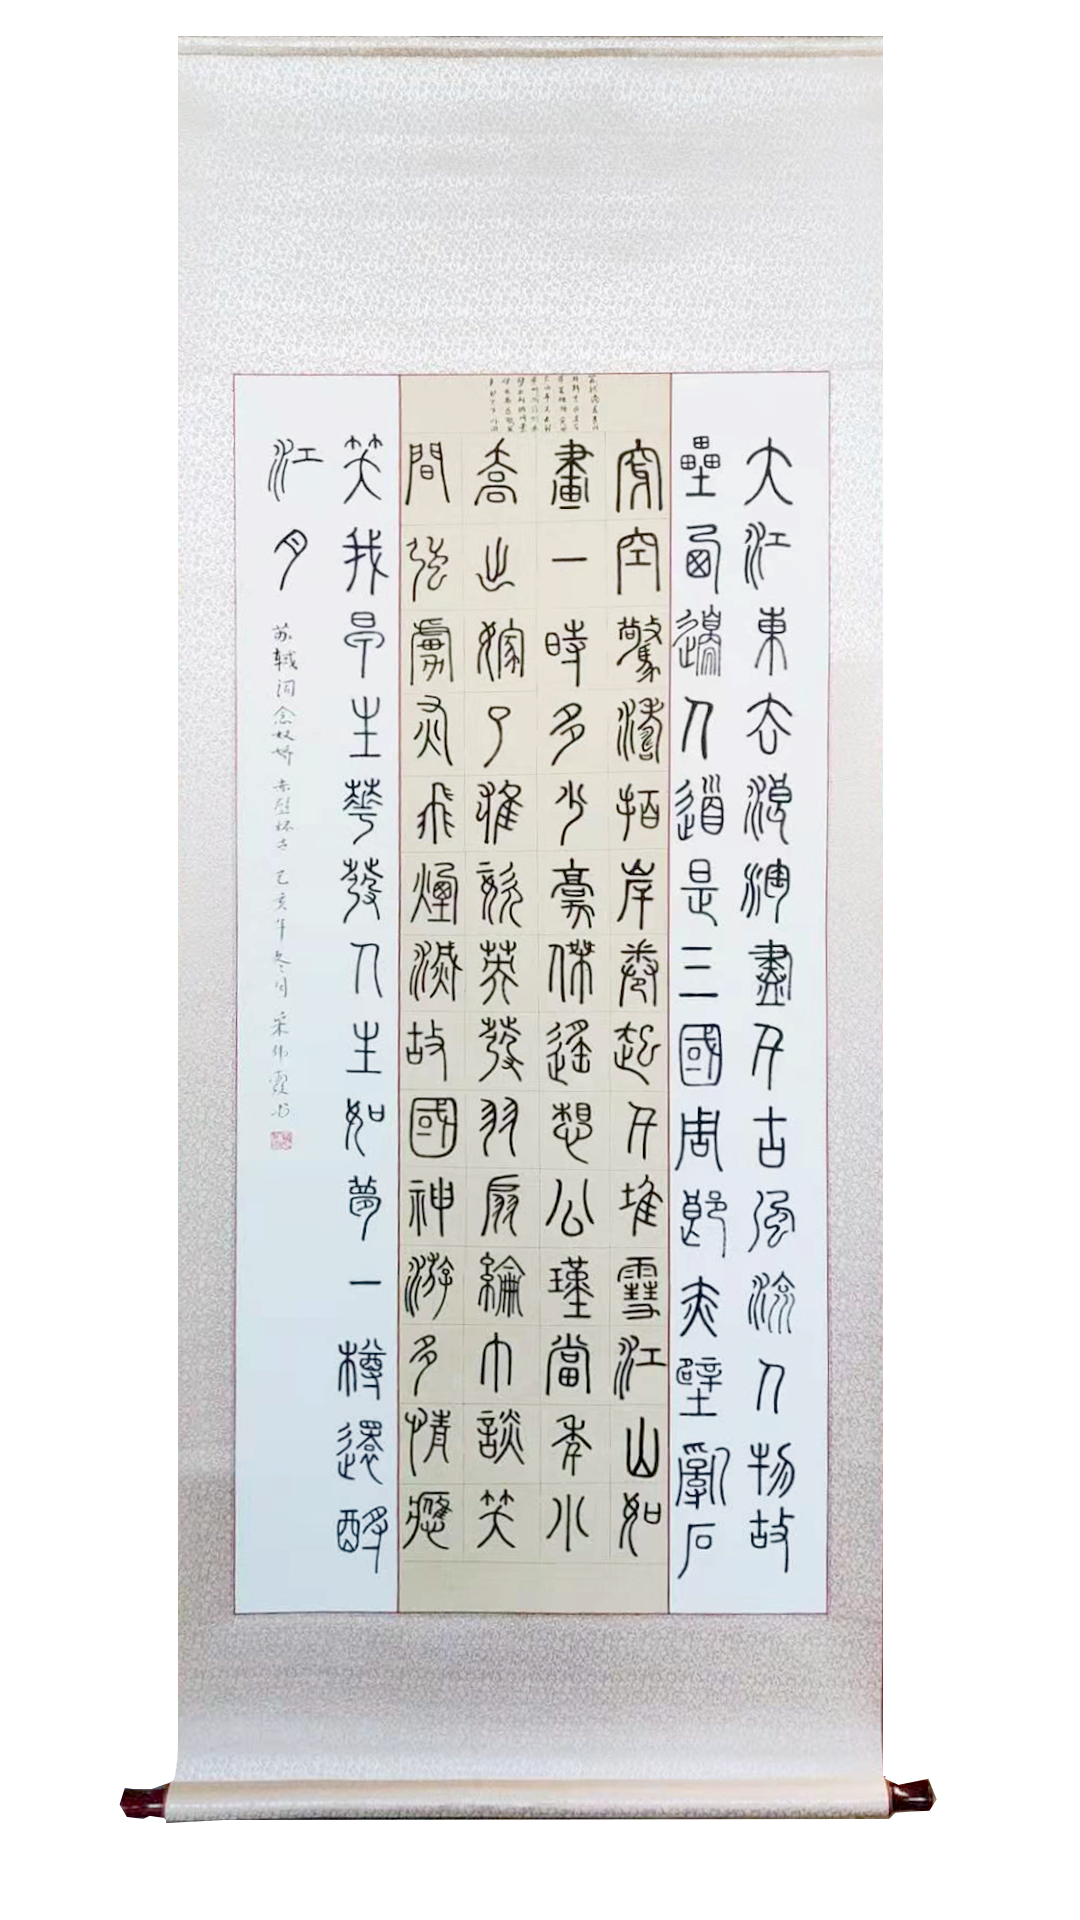 大江東去浪淘盡千古風流人物故
壘西邊人道是三國周郎赤壁亂石
穿空驚濤拍岸卷起千堆雪江山如
畫一時多少豪傑遙想公瑾當年小
喬出嫁了雄姿英發羽扇綸巾談笑
間強虜灰飛煙滅故國神游多情應
笑我早生華發人生如夢一樽還酹
江月
苏軾词念奴娇 赤壁怀古 己亥年冬月 伟霞书